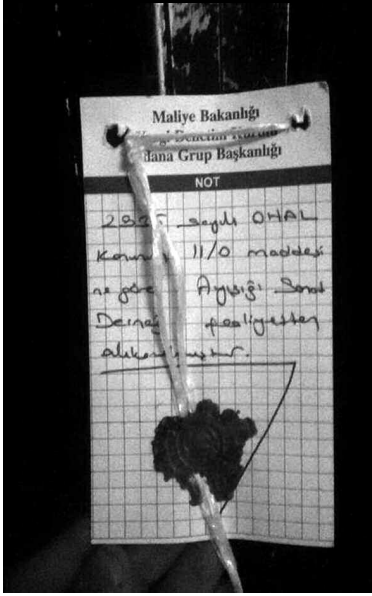 Maliye Bakanlığı
Vergi Denetim Kurulu
dana Grup Başkanlığı
NOT
2935 sayılı OHAL
Kanunu 11/O maddesi
ne göre Ayışığı Sanat
Derneği faaliyetten
alıkonulmuştur.